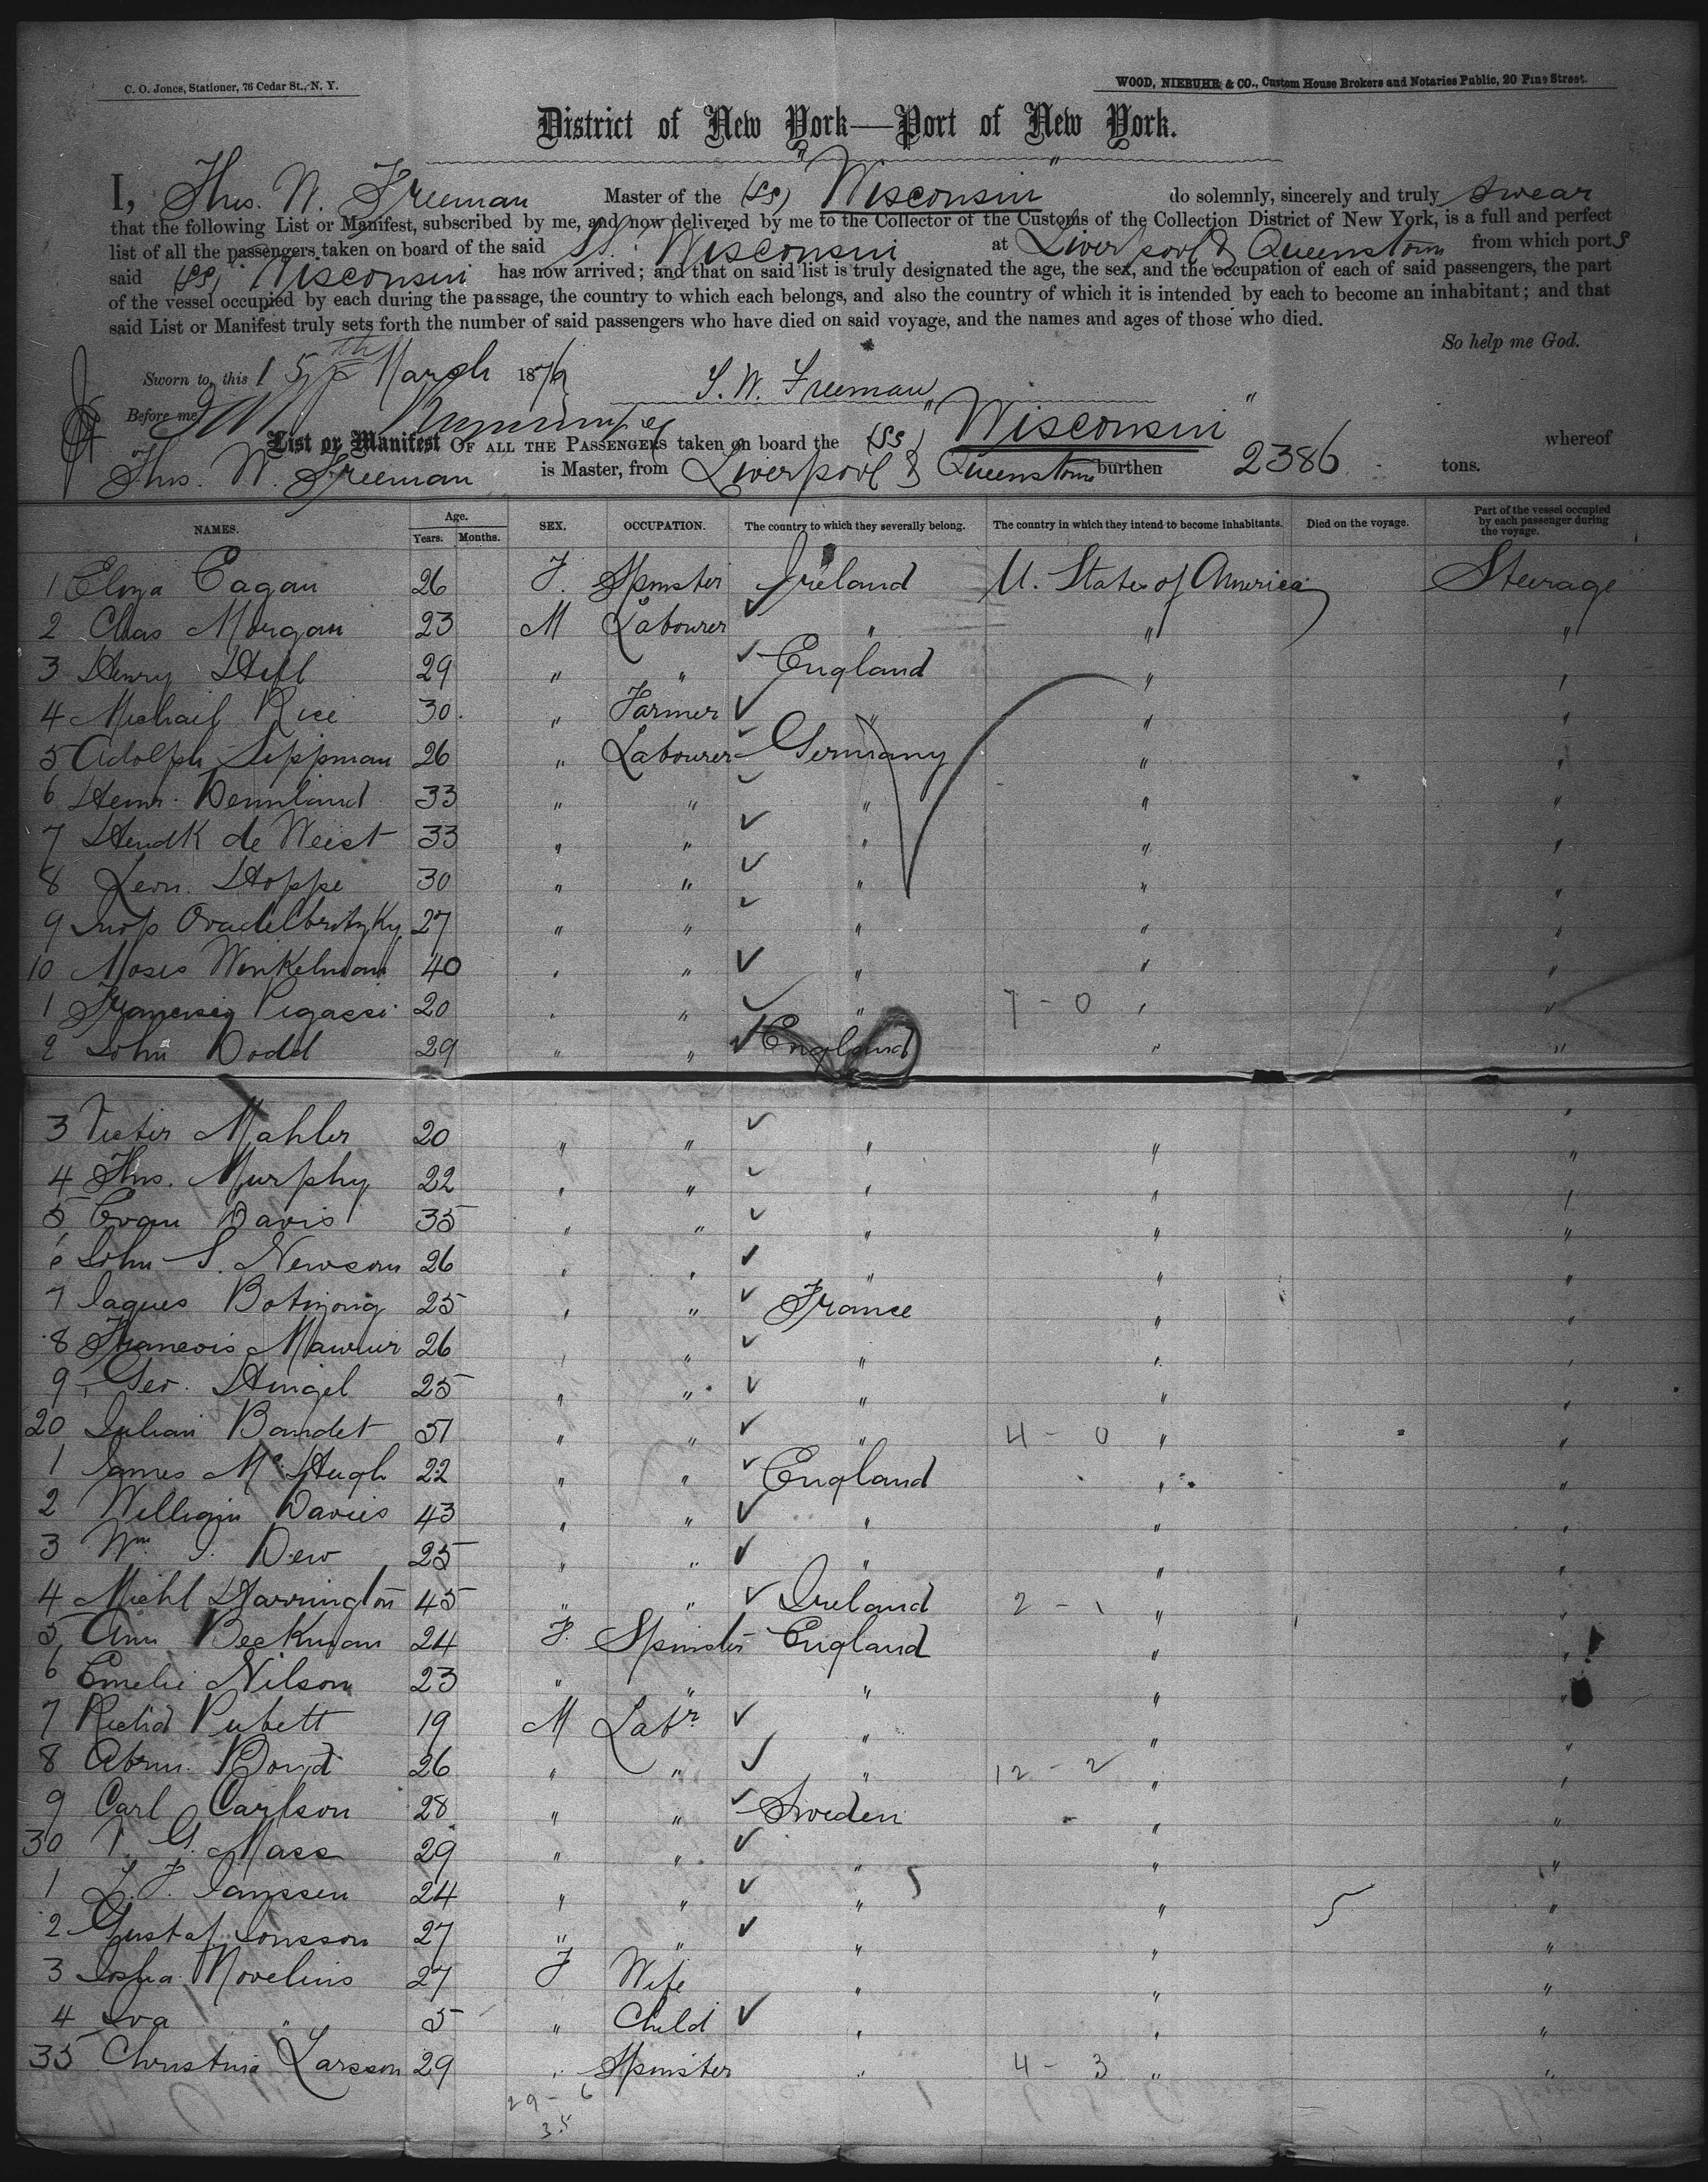 C. O. Jones, Stationer, 76 Cedar St., N. Y.
WOOD, NIEBUHR & CO., Custom House Brokers and Notaries Public, 20 Pine Street.
District of New York—Port of New York.
I, Thos. W. Freeman Master of the (SS) Wisconsin do solemnly, sincerely and truly swear
that the following List or Manifest, subscribed by me, and now delivered by me to the Collector of the Customs of the Collection District of New York, is a full and perfect
list of all the passengers taken on board of the said SS. Wisconsin at Liverpool & Queenstown from which ports
said (SS) Wisconsin has now arrived; and that on said list is truly designated the age, the sex, and the occupation of each of said passengers, the part
of the vessel occupied by each during the passage, the country to which each belongs, and also the country of which it is intended by each to become an inhabitant; and that
said List or Manifest truly sets forth the number of said passengers who have died on said voyage, and the names and ages of those who died.
So help me God.
Sworn to, this 15th March 1876
T. W. Freeman
Before me
List or Manifest OF ALL THE PASSENGERS taken on board the (SS) Wisconsin whereof
Thos. W. Freeman is Master, from Liverpool & Queenstown burthen 2386 tons.
NAMES. Age. Years. Months. SEX. OCCUPATION. The country to which they severally belong. The country in which they intend to become inhabitants. Died on the voyage. Part of the vessel occupied by each passenger during the voyage.
1 Eliza Eagan 26 F. Spinster Ireland U. States of America Steerage
2 Chas Morgan 23 M Labourer " " "
3 Henry Hill 29 " " England " "
4 Michail Rice 30 " Farmer " " "
5 Adolph Lippman 26 " Labourer Germany " "
6 Henr. 33 " " " " "
7 Hendk de Weist 33 " " " " "
8 Leon. Hoppe 30 " " " " "
9 27 " " " " "
10 Moses Winkelman 40 " " " " "
1 Pigassi 20 " " " 7 - 0 " "
2 John Dodd 29 " " England " "
3 Victor Mahler 20 " " " " "
4 Thos. Murphy 22 " " " " "
5 Evan Davis 35 " " " " "
6 John S. Newsom 26 " " " " "
7 Jaques 25 " " France " "
8 Francois 26 " " " " "
9 Geo. Hingel 25 " " " " "
20 Julian Baudet 51 " " " 4 - 0 " "
1 James McHugh 22 " " England " "
2 William Davies 43 " " " " "
3 Wm. J. Dew 25 " " " " "
4 Michl Harrington 45 " " Ireland 2 - 1 " "
5 Ann Beckman 24 F. Spinster England " "
6 Emelie Nilson 23 " " " " "
7 Richd Pubett 19 M Labr " " "
8 Abrm. Boyd 26 " " " 12 - 2 " "
9 Carl Carlson 28 " " Sweden " "
30 Mass 29 " " " " "
1 J. F. Janssen 24 " " " 5 " 5 "
2 Gustaf Jonsson 27 " " " " "
3 Novelius 27 F Wife " " "
4 Iva " 5 " Child " " "
35 Christine Larsson 29 " Spinster " 4 - 3 " "
29 - 6
35